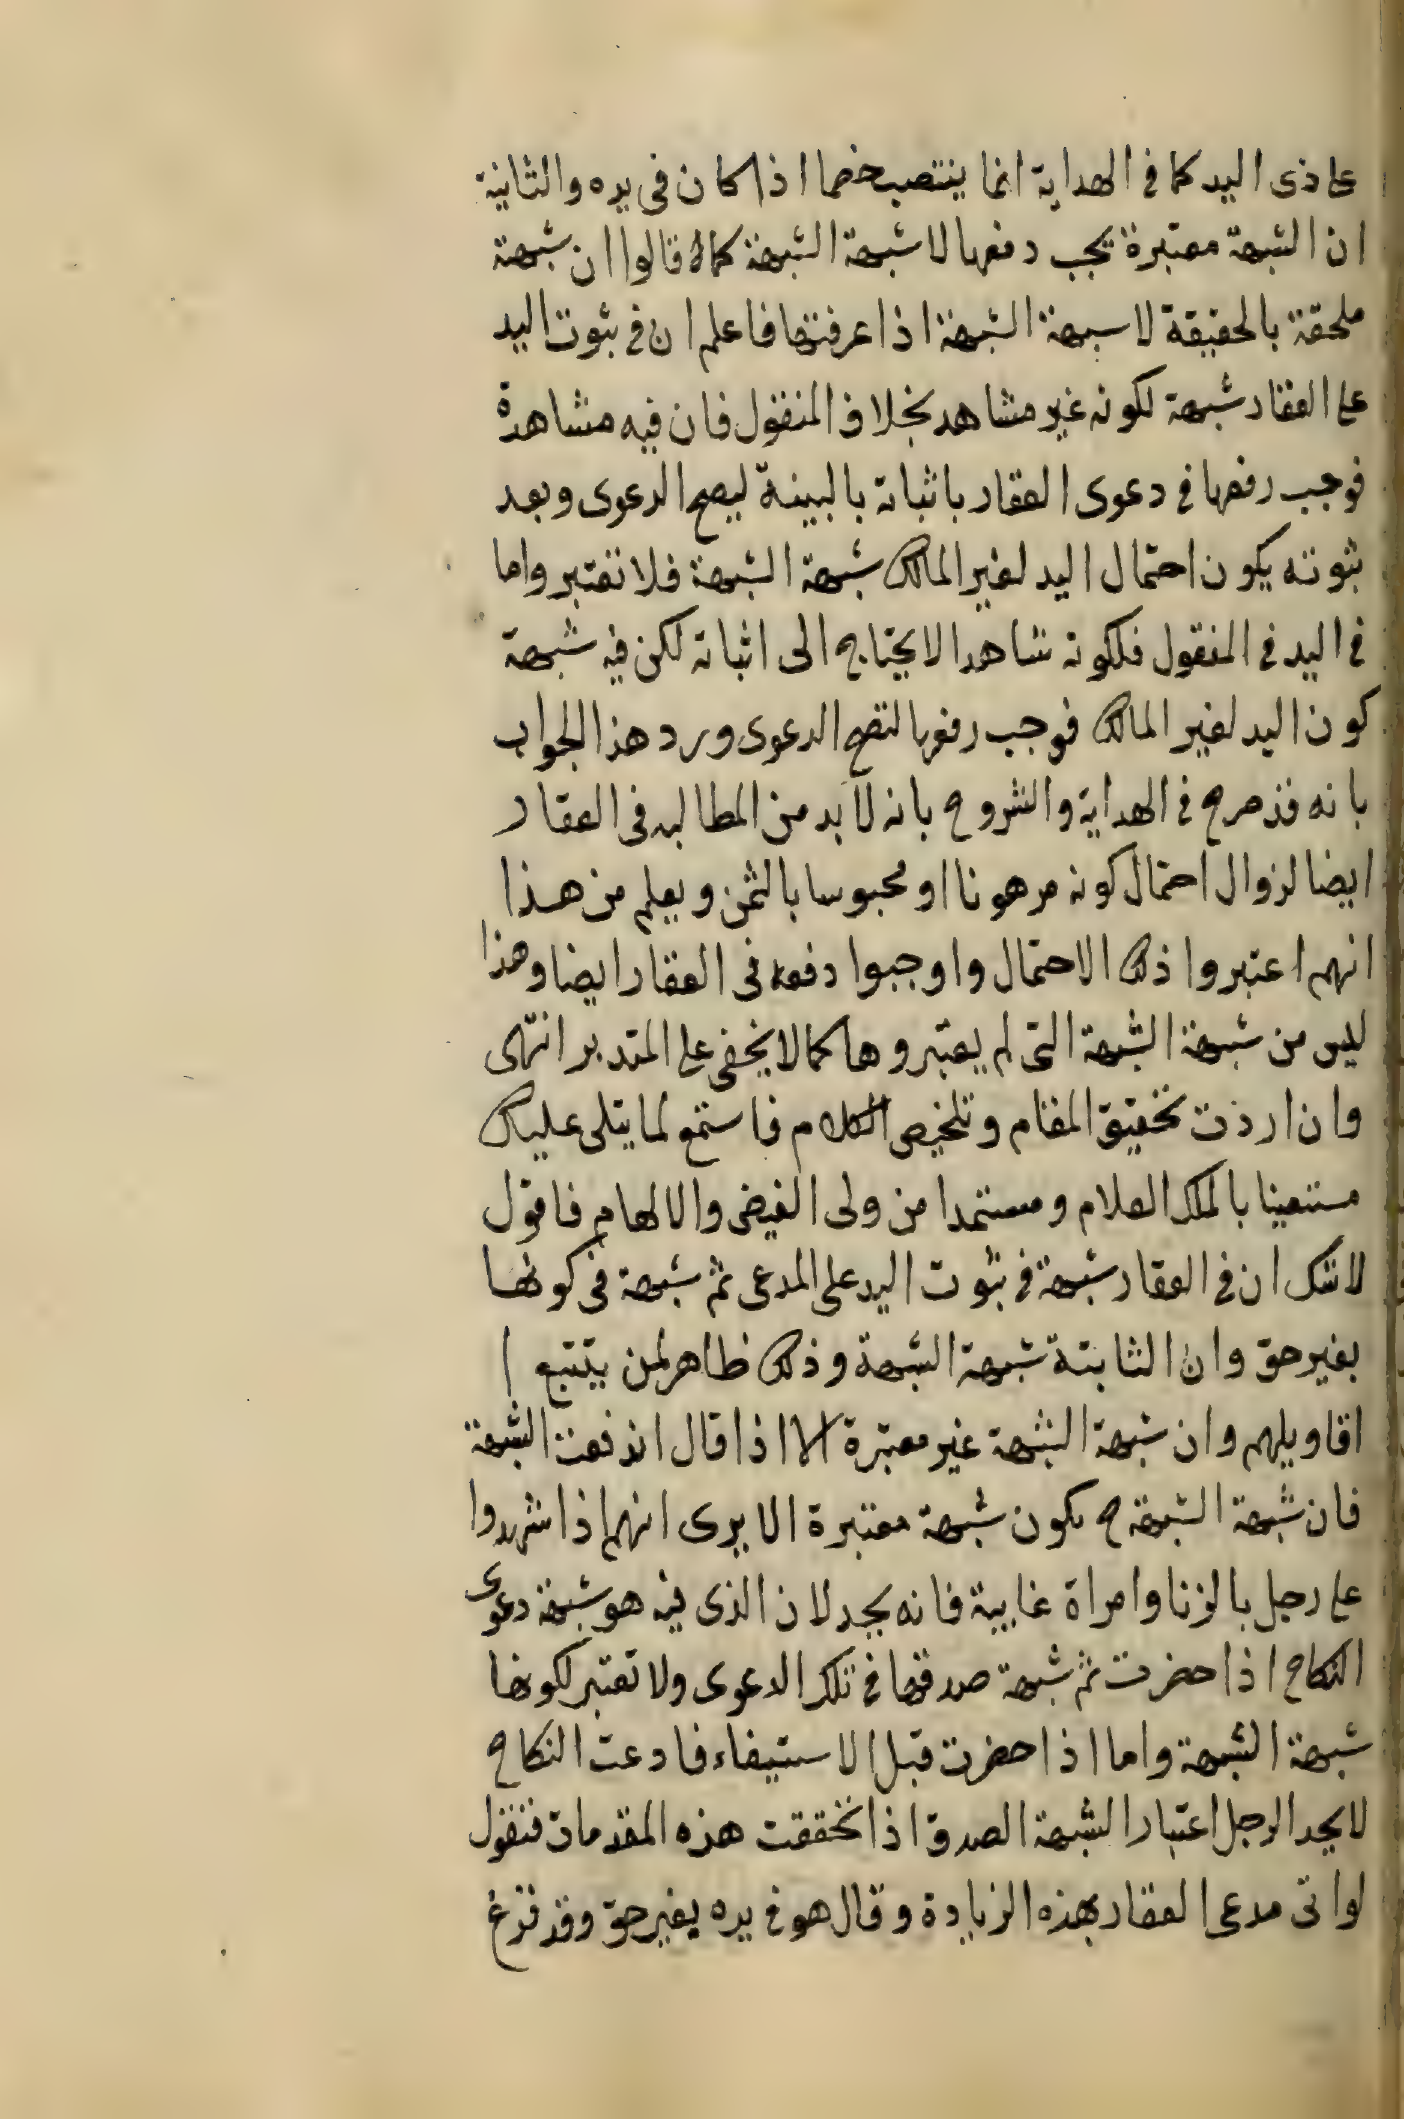 على ذى اليد كما فى الهداية انما ينتصب خصما اذا كان فى يده والثانية
ان الشبهة معتبرة يجب دفعها لا شبهة الشبهة كما قالوا ان شبهة
ملحقة بالحقيقة لا سبهة الشبهة اذا عرفتها فاعلم ان فى ثبوت اليد
على العقار شبهة لكونه غير مشاهد بخلاف المنقول فان فيه مشاهدة
فوجب رفعها فى دعوى العقار باثباته بالبينة ليصح الدعوى وبعد
ثبوته يكون احتمال اليد لغير المالك شبهة الشبهة فلا تعتبر واما
فى اليد فى المنقول فلكونه شاهدا لا يحتاج الى اثباته لكن فيه شبهة
كون اليد لغير المالك فوجب رفعها لتصح الدعوى ورد هذا الجواب
بانه قد صرح فى الهداية والشروح بانه لا بد من المطالبه فى العقار
ايضا لزوال احتمال كونه مرهونا او محبوسا بالثمن ويعلم من هذا
انهم اعتبروا ذلك الاحتمال واوجبوا دفعه فى العقار ايضا وهذا
ليس من شبهة الشبهة التى لم يعتبروها كما لا يخفى على المتدبر انتهى
وان اردت تحقيق المقام وتلخيص الكلام فاستمع لما يتلى عليك
مستعينا بالملك العلام ومستمدا من ولى الفيض والالهام فاقول
لا شك ان فى العقار شبهة فى ثبوت اليد على المدعى ثم شبهة فى كونها
بغير حق وان الثابتة شبهة الشبهة وذلك ظاهر لمن يتتبع ا
اقاويلهم وان شبهة الشبهة غير معتبرة الا اذا قال اندفعت الشبهة
فان شبهة الشبهة ح يكون شبهة معتبرة الا يرى انهم اذا شهدوا
على رجل بالزنا وامراة غايبة فانه يحد لان الذى فيه هو شبهة دعوى
النكاح اذا حضرت ثم شبهة صدقها فى تلك الدعوى ولا تعتبر لكونها
شبهة الشبهة واما اذا حضرت قبل الاستيفاء فادعت النكاح
لا يحد الرجل اعتبارا لشبهة الصدق اذا تحققت هذه المقدمات فنقول
لو اتى مدعى العقار بهذه الزيادة وقال هو فى يده بغير حق وقد فرغ